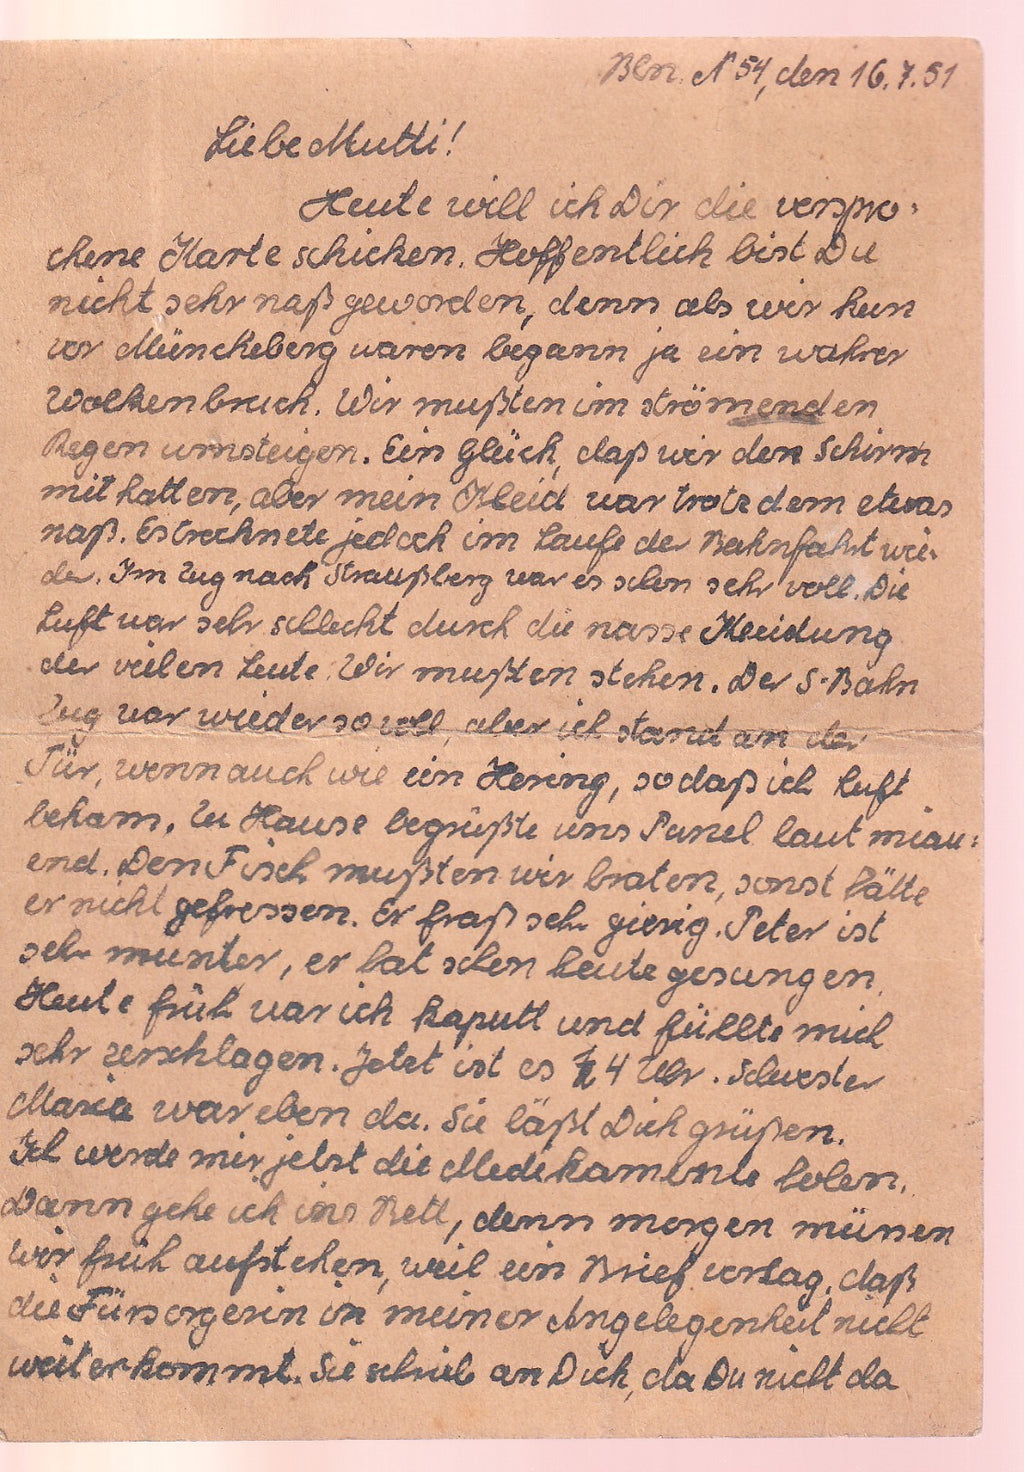 Bln. N 54, den 16.7.51
Liebe Mutti!
Heute will ich Dir die verspro-
chene Karte schicken. Hoffentlich bist Du
nicht sehr naß geworden, denn als wir kurz
vor Müncheberg waren begann ja ein wahrer
Wolkenbruch. Wir mußten im strömenden
Regen umsteigen. Ein Glück, daß wir den Schirm
mit hatten, aber mein Kleid war trotzdem etwas
naß. Es trocknete jedoch im Laufe der Bahnfahrt wie-
der. Im Zug nach Straußberg war es schon sehr voll. Die
Luft war sehr schlecht durch die nasse Kleidung
der vielen Leute. Wir mußten stehen. Der S-Bahn
Zug war wieder so voll, aber ich stand an der
Tür, wenn auch wie ein Hering, sodaß ich Luft
bekam. Zu Hause begrüßte uns laut miau-
end. Den Fisch mußten wir braten, sonst hätte
er nicht gefressen. Er fraß sehr gierig. Peter ist
sehr munter, er hat schon heute gesungen.
Heute früh war ich kaputt und füllte mich
sehr zerschlagen. Jetzt ist es 4 Uhr. Schwester
Maria war eben da. Sie läßt Dich grüßen.
Ich werde mir jetzt die Medikamente holen.
Dann gehe ich ins Bett, denn morgen müssen
wir früh aufstehen, weil ein Brief vorlag, daß
die Fürsorgerin in meiner Angelegenheit nicht
weiterkommt. Sie schrieb an Dich, da Du nicht da